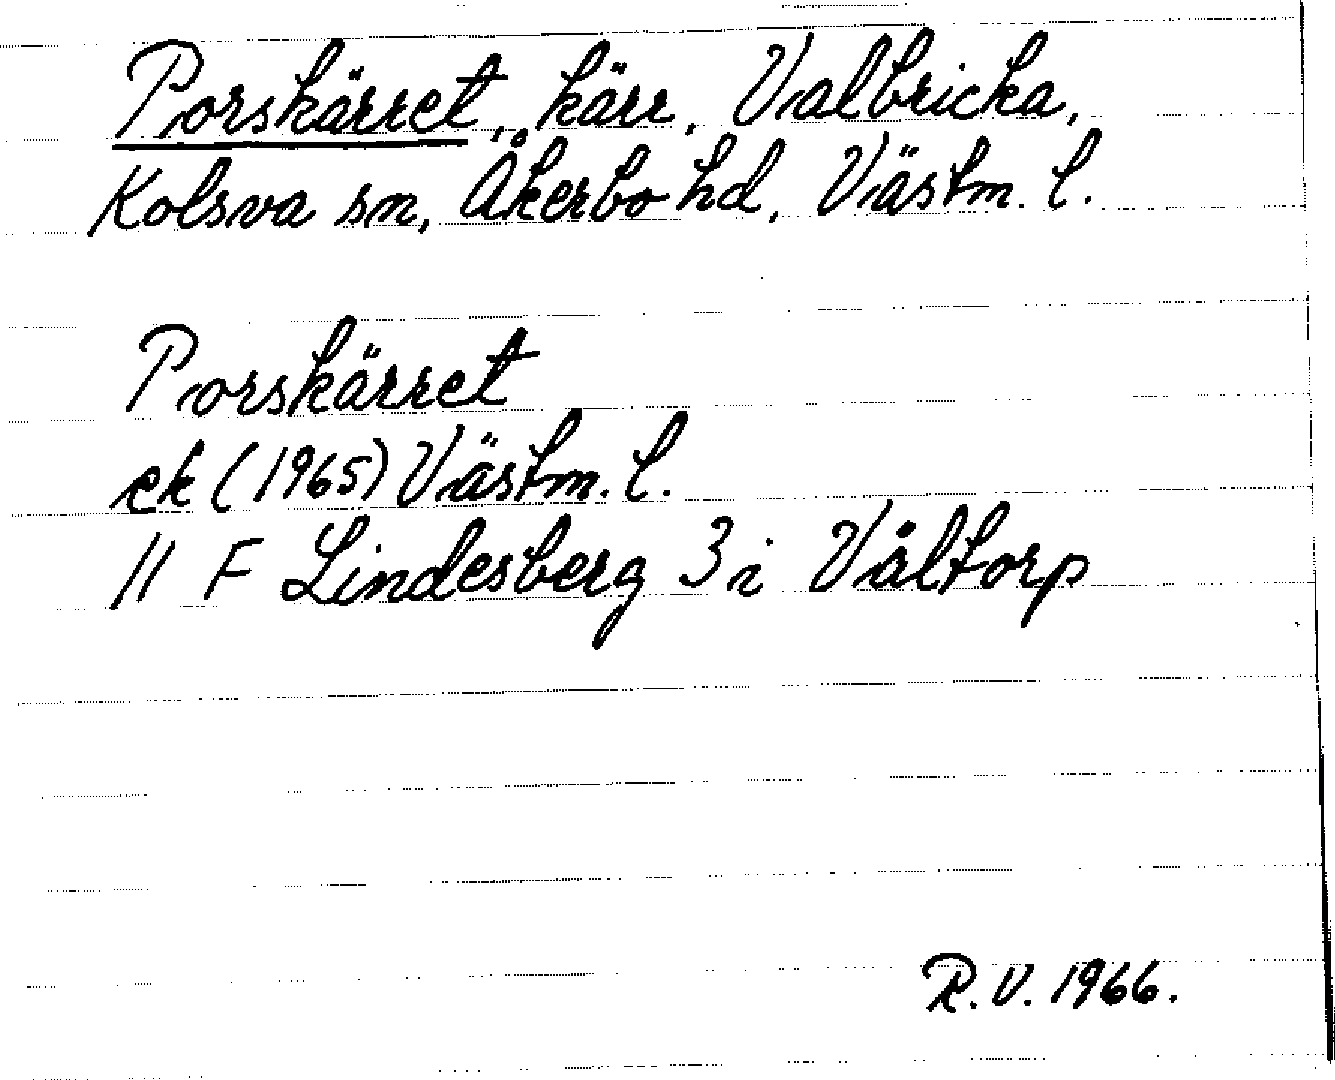 Porskärret, kärr, Valbricka,
Kolsva sn, Åkerbo hd, Västm. l.
Porskärret
ek (1965) Västm. l.
11 F Lindesberg 3 i Våltorp
R.V. 1966.